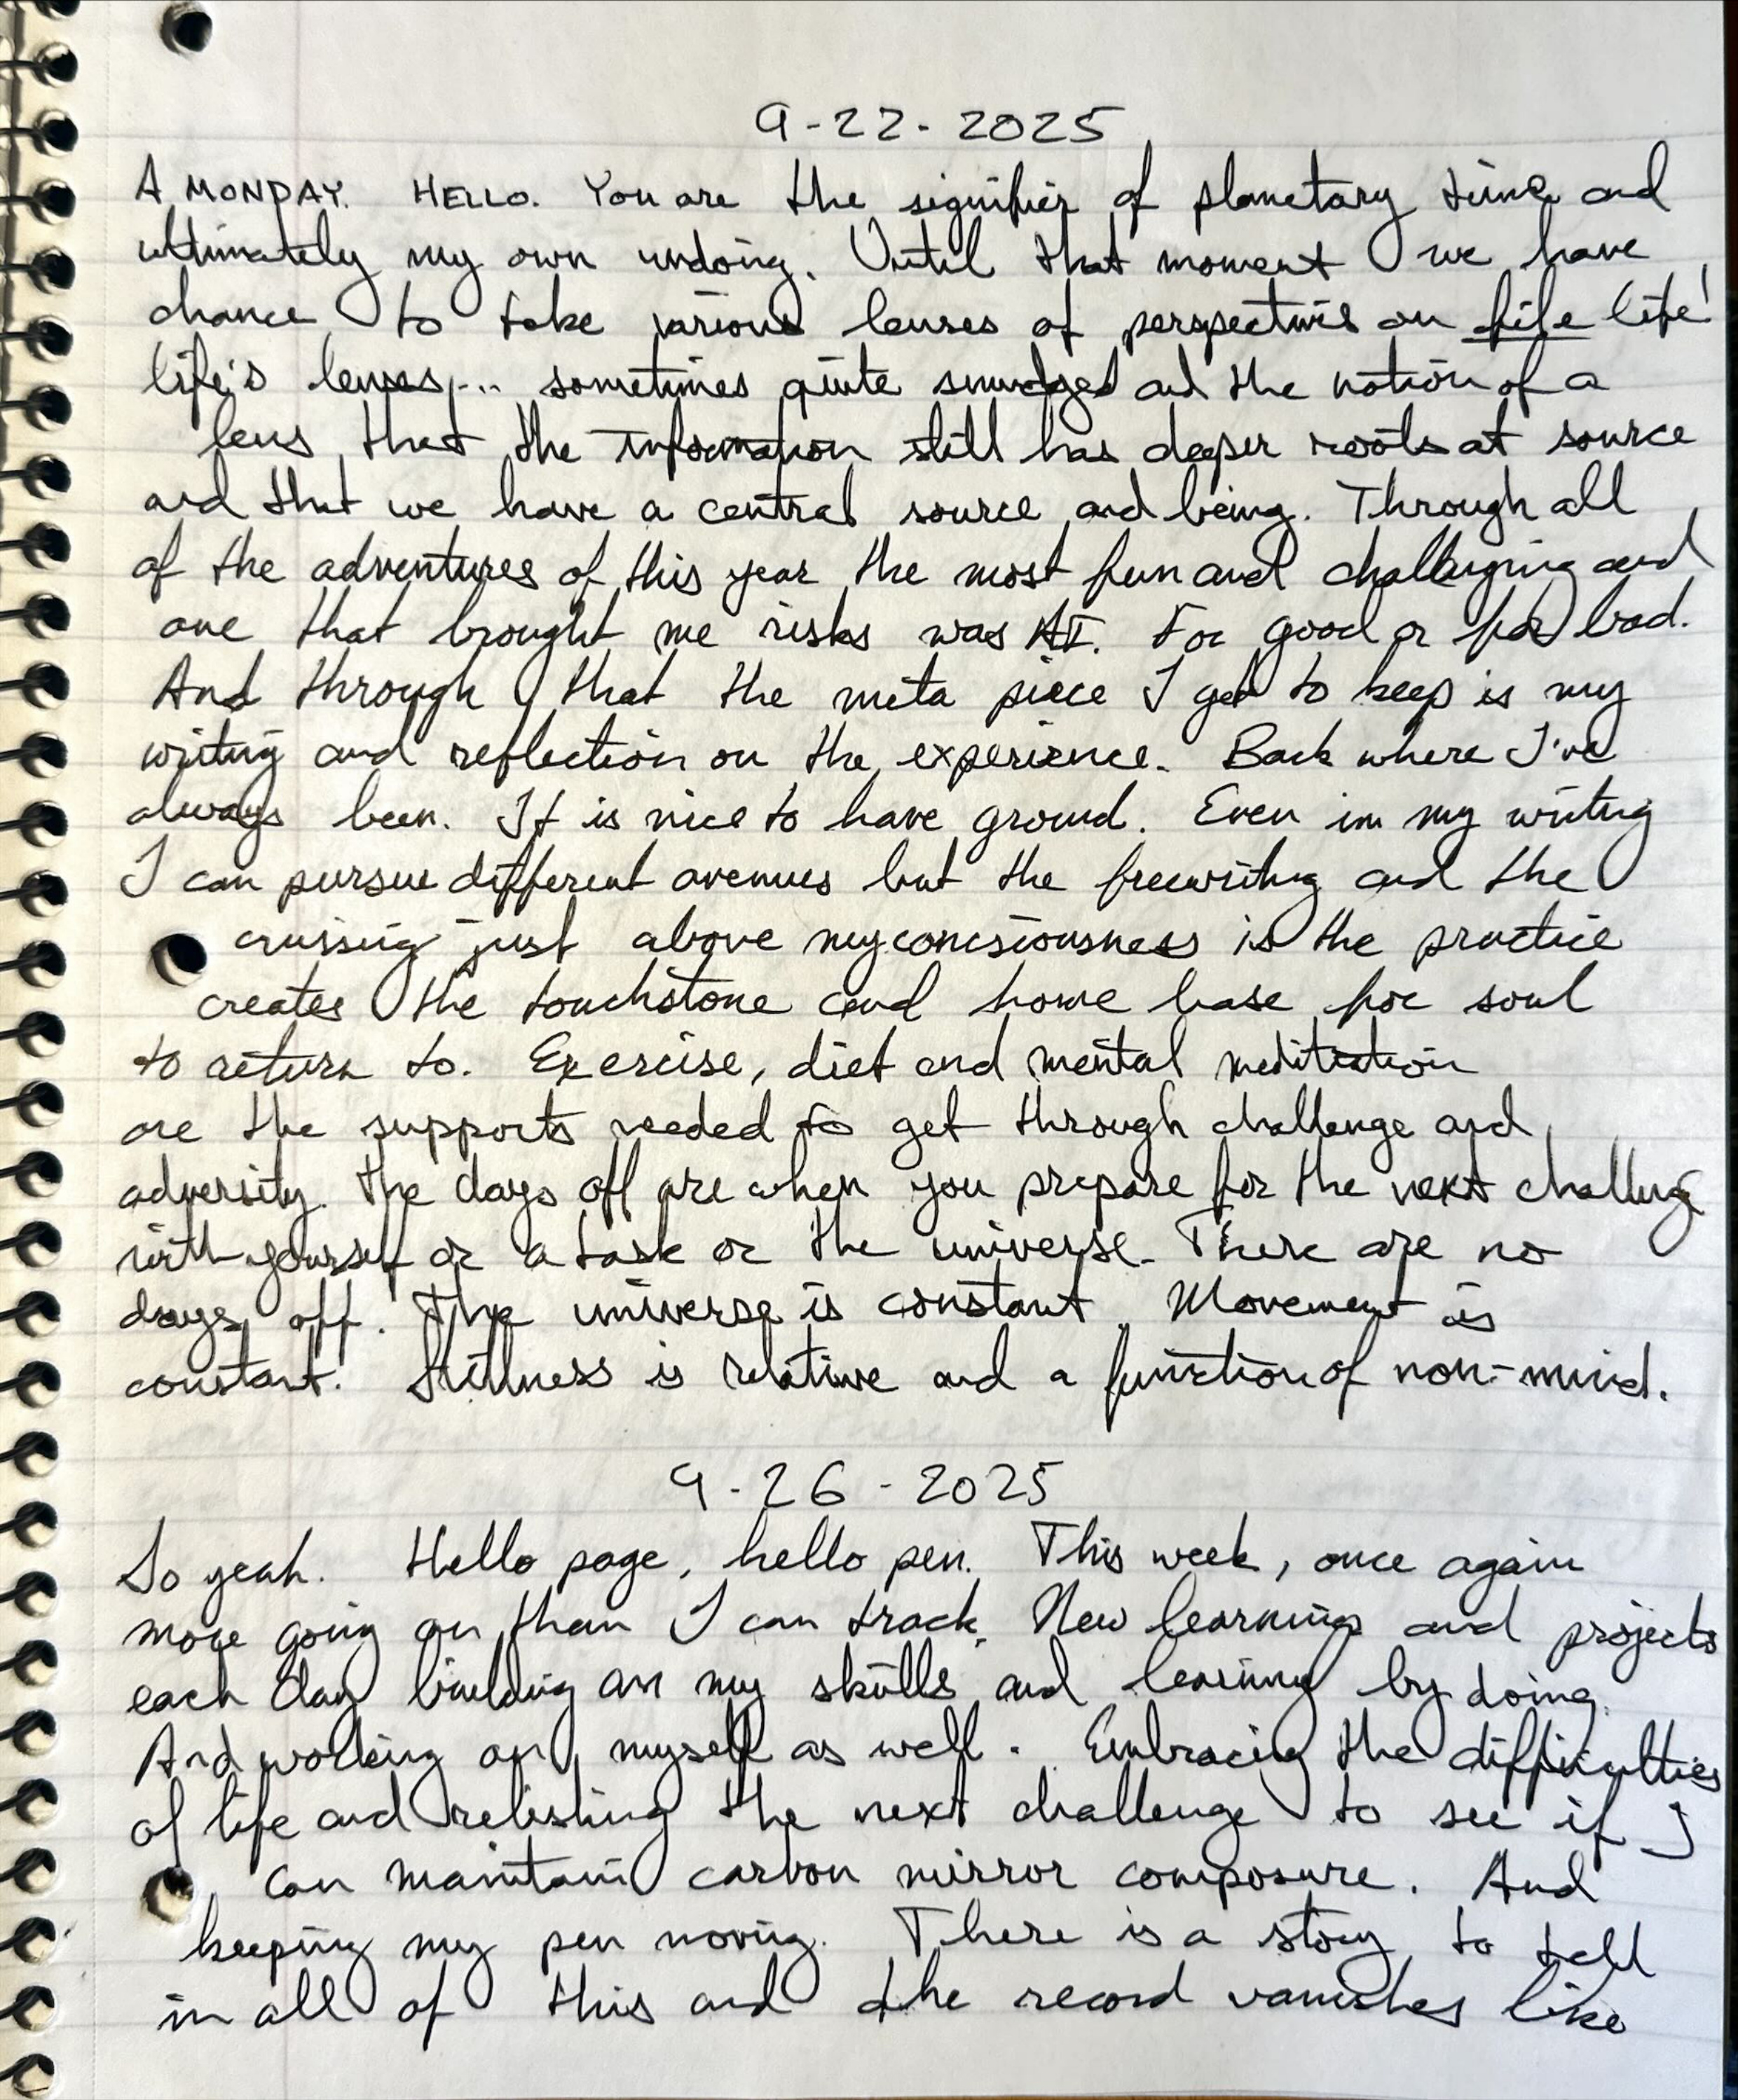 9-22-2025
A MONDAY. HELLO. You are the signifier of planetary time and
ultimately my own undoing. Until that moment we have
chance to take various lenses of perspective on life life!
life's lenses,... sometimes quite smudged and the notion of a
lens that the information still has deeper roots at source
and that we have a central source and being. Through all
of the adventures of this year the most fun and challenging and
one that brought me risks was AI. For good or for bad.
And through that the meta piece I get to keep is my
writing and reflection on the experience. Back where I've
always been. It is nice to have ground. Even in my writing
I can pursue different avenues but the freewriting and the
cruising just above my conciousness is the practice
creates the touchstone and home base for soul
to return to. Exercise, diet and mental meditation
are the supports needed to get through challenge and
adversity. The days off are when you prepare for the next challeng
with yourself or a task or the universe. There are no
days off. The universe is constant. Movement is
constant. Stillness is relative and a function of non-mind.
9-26-2025
So yeah. Hello page, hello pen. This week, once again
more going on than I can track. New learnings and projects
each day building on my skills and learning by doing.
And working on myself as well. Embracing the difficulties
of life and relishing the next challenge to see if I
can maintain carbon mirror composure. And
keeping my pen moving. There is a story to tell
in all of this and the record vanishes like